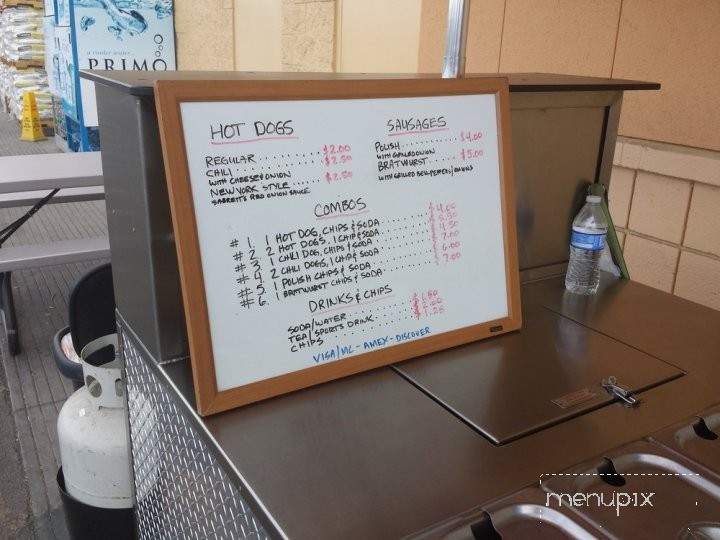 a cooler water
PRIMO
HOT DOGS
REGULAR ............ $2.00
CHILI ............ $2.50
WITH CHEESE & ONION
NEW YORK STYLE .... $2.50
SABRETT'S RED ONION SAUCE
SAUSAGES
POLISH ............ $4.00
WITH GRILLED ONION
BRATWURST ........ $5.00
WITH GRILLED BELL PEPPERS / ONIONS
COMBOS
# 1. 1 HOT DOG, CHIPS & SODA
# 2. 2 HOT DOGS, 1 CHIP & SODA
# 3. 1 CHILI DOG, CHIPS & SODA $4.50
# 4. 2 CHILI DOGS, 1 CHIP & SODA $7.00
# 5. 1 POLISH CHIPS & SODA $6.00
# 6. 1 BRATWURST CHIPS & SODA $7.00
DRINKS & CHIPS
SODA/WATER
TEA/SPORTS DRINK
CHIPS $1.25
VISA/MC - AMEX - DISCOVER
menupix